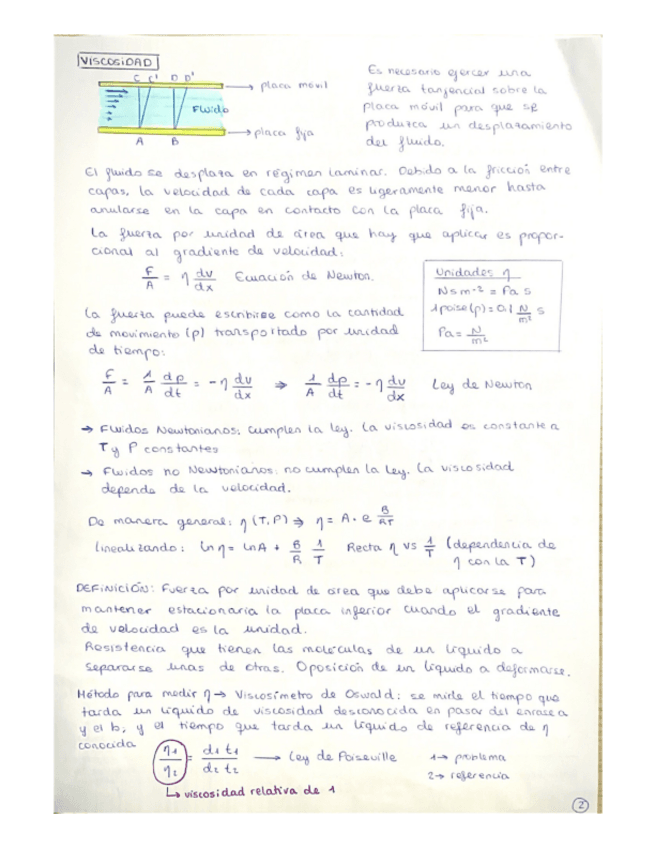 VISCOSIDAD
C C' D D'
placa móvil
Fluido
placa fija
A B
Es necesario ejercer una
fuerza tangencial sobre la
placa móvil para que se
produzca un desplazamiento
del fluido.
El fluido se desplaza en régimen laminar. Debido a la fricción entre
capas, la velocidad de cada capa es ligeramente menor hasta
anularse en la capa en contacto con la placa fija.
La fuerza por unidad de área que hay que aplicar es propor-
cional al gradiente de velocidad:
F/A = η dv/dx Ecuación de Newton.
Unidades η
N s m-2 = Pa s
1 poise (p) = 0,1 N/m² s
Pa = N/m²
La fuerza puede escribirse como la cantidad
de movimiento (p) transportado por unidad
de tiempo:
F/A = 1/A dp/dt = -η dv/dx ⇒ 1/A dp/dt = -η dv/dx Ley de Newton
→ Fluidos Newtonianos: cumplen la ley. La viscosidad es constante a
T y P constantes
→ Fluidos no Newtonianos: no cumplen la ley. La viscosidad
depende de la velocidad.
De manera general: η (T, P) ⇒ η = A · e B/RT
Linealizando: ln η = ln A + B/R 1/T Recta η vs 1/T (dependencia de
η con la T)
DEFINICIÓN: Fuerza por unidad de área que debe aplicarse para
mantener estacionaria la placa inferior cuando el gradiente
de velocidad es la unidad.
Resistencia que tienen las moléculas de un líquido a
separarse unas de otras. Oposición de un líquido a deformarse.
Método para medir η → Viscosímetro de Oswald: se mide el tiempo que
tarda un líquido de viscosidad desconocida en pasar del enrase a
y el b, y el tiempo que tarda un líquido de referencia de η
conocida
η1/η2 = d1 t1/d2 t2 → Ley de Poiseville
1 → problema
2 → referencia
↳ viscosidad relativa de 1
2